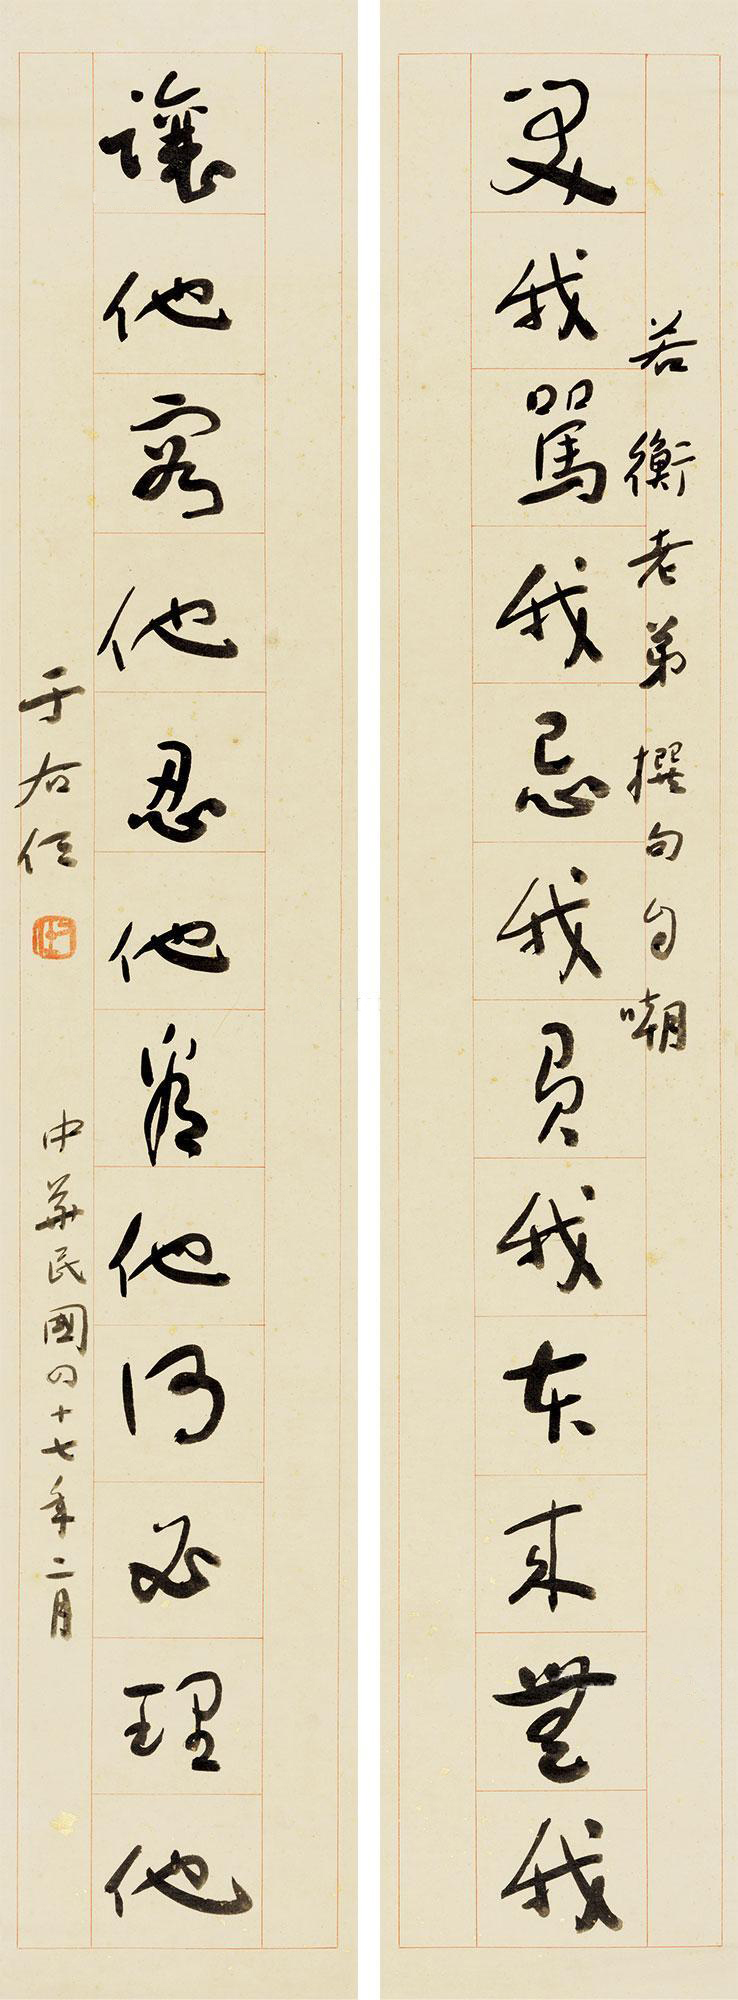 若衡老弟 撰句自嘲
笑我罵我忌我負我本來無我
讓他容他忍他看他何必理他
于右任
中華民國四十七年二月